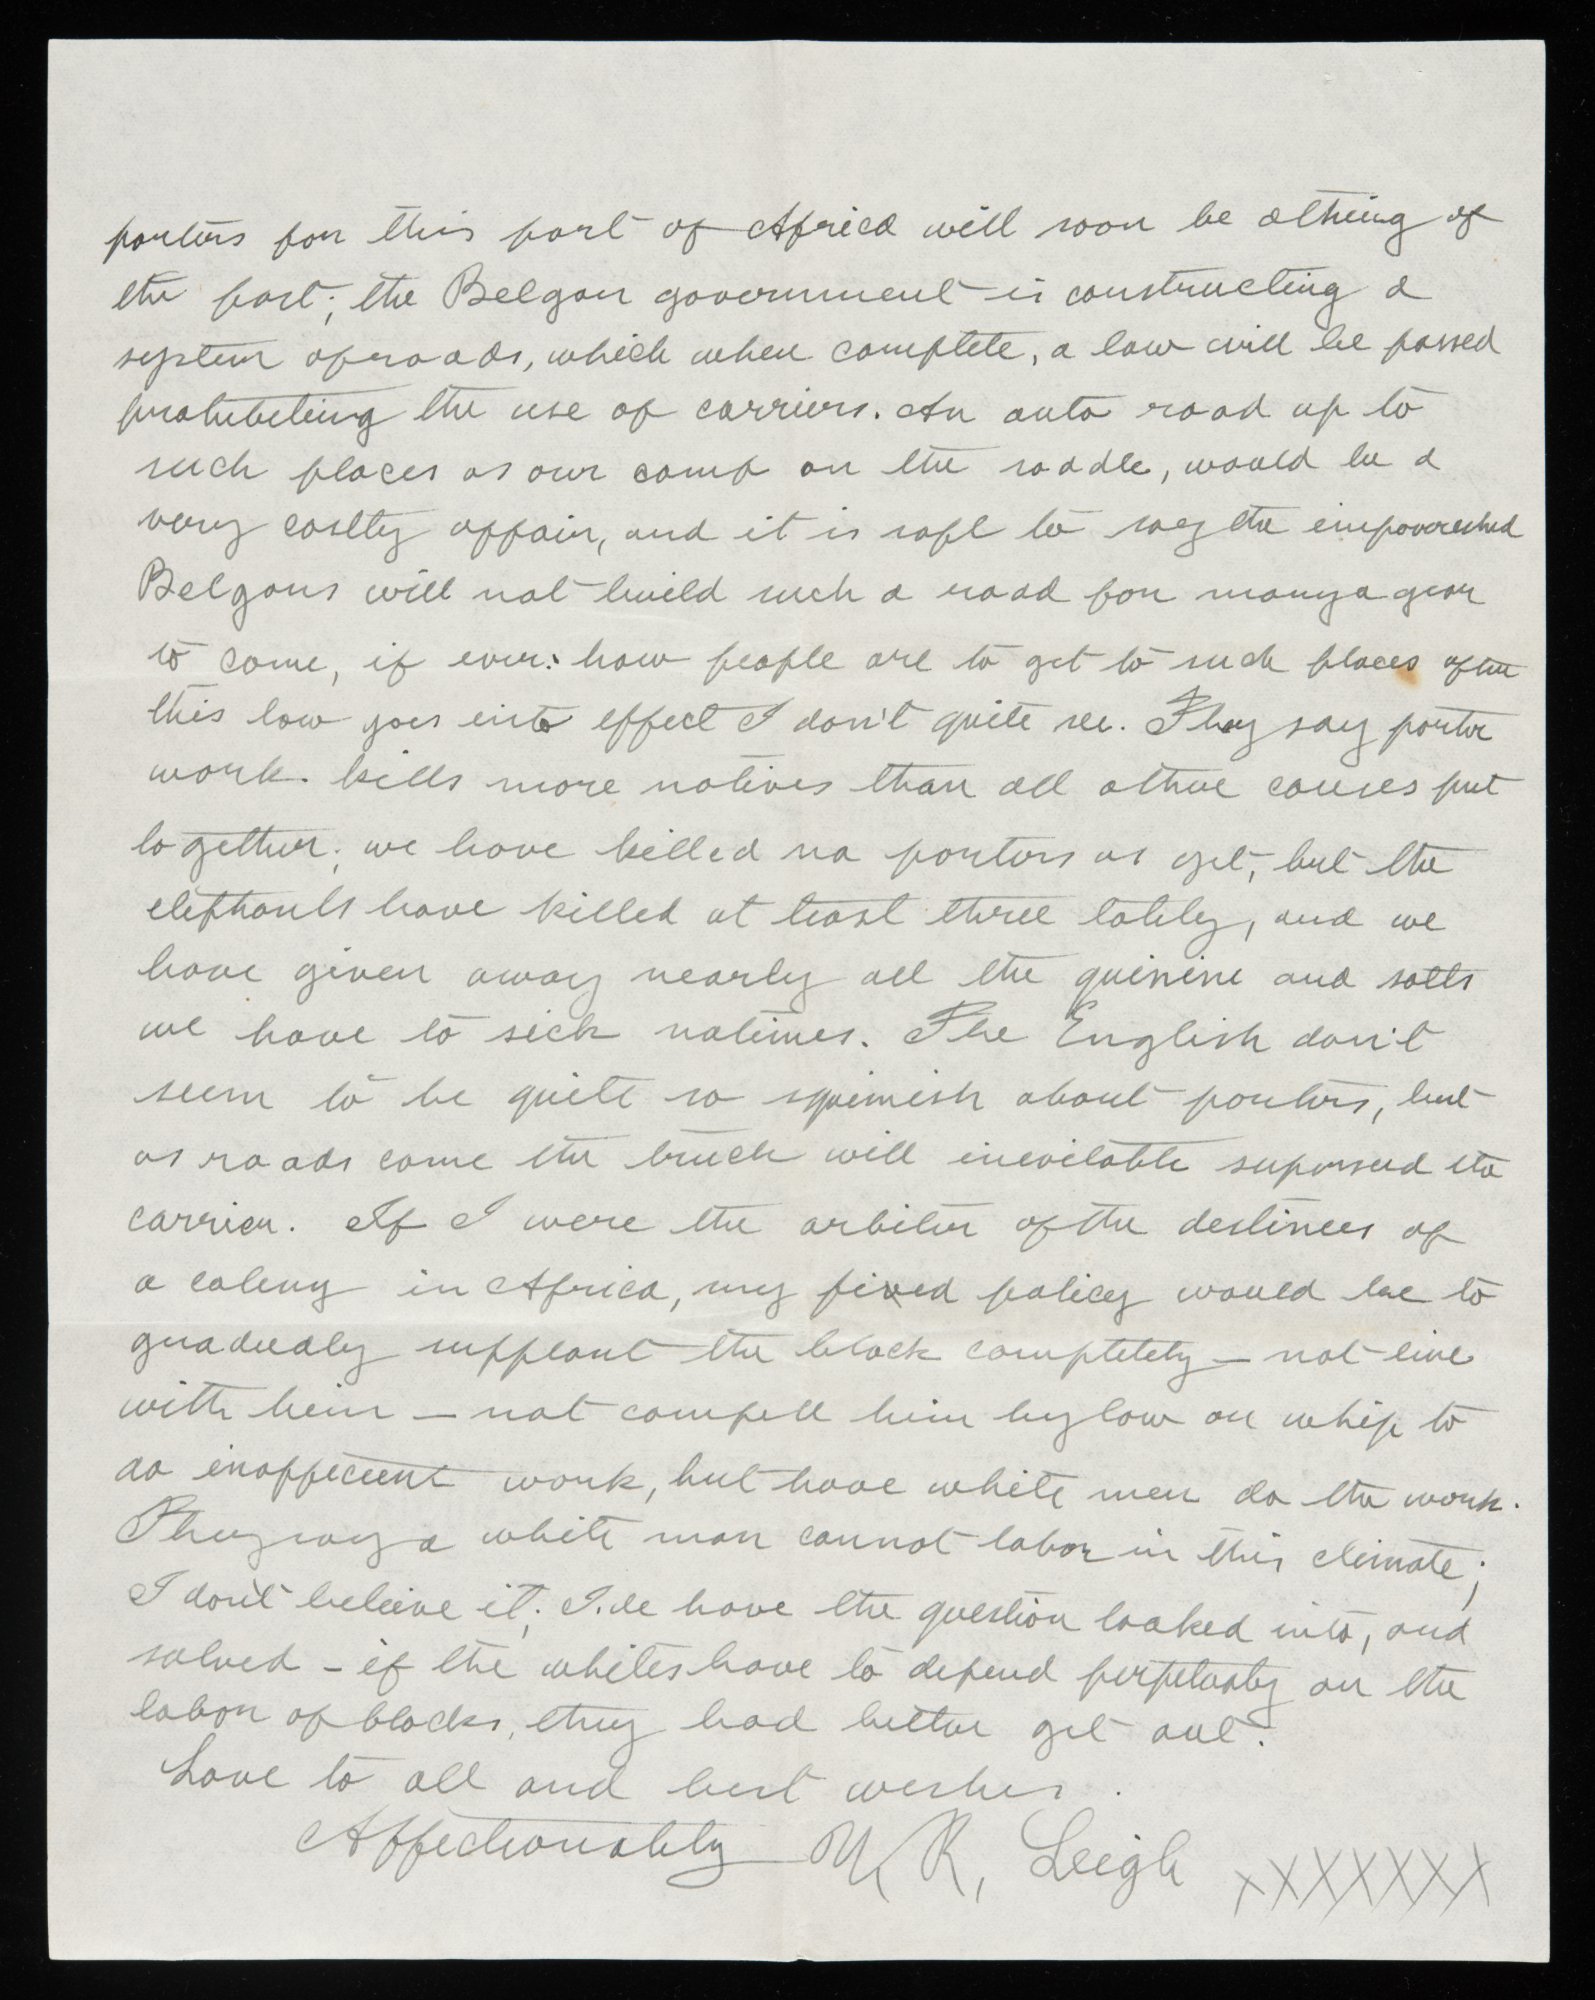 porters for this part of Africa will soon be a thing of
the past; the Belgan government is constructing a
system of roads, which when complete, a law will be passed
prohibiting the use of carriers. An auto road up to
such places as our camp on the saddle, would be a
very costly affair, and it is safe to say the impoverished
Belgans will not build such a road for many a year
to come, if ever: how people are to get to such places after
this law goes into effect I don't quite see. They say porter
work kills more natives than all other causes put
together; we have killed no porters as yet, but the
elephants have killed at least three lately, and we
have given away nearly all the quinine and salts
we have to sick natives. The English don't
seem to be quite so squimish about porters, but
as roads come the truck will inevitable supersed the
carrier. If I were the arbiter of the destinees of
a colony in Africa, my fixed policy would be to
gradually supplant the black completely – not live
with him – not compell him by law or whip to
do inefficient work, but have white men do the work.
They say a white man cannot labor in this climate;
I don't believe it; I'de have the question looked into, and
solved – if the whites have to depend perpetualy on the
labor of blacks, they had better get out.
Love to all and best wishes.
Affectionately W. R. Leigh XXXXXXX